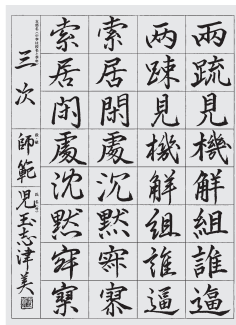 兩疏見機解組誰逼
两踈見機解組誰逼
索居閑處沉默寂寥
索居閑處沈默寂寥
三次 師範 児玉志津美